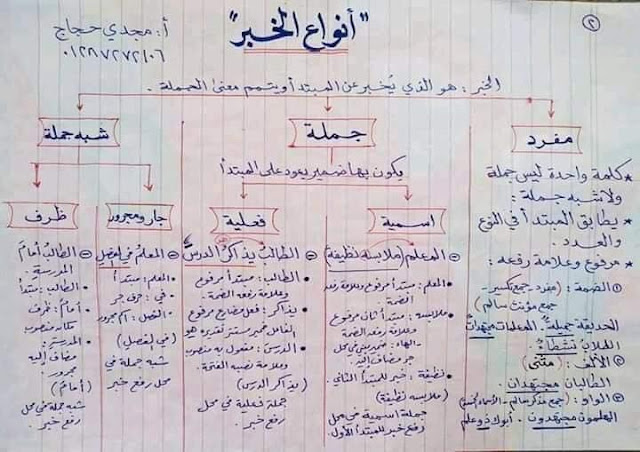 "أنواع الخبر"
أ: مجدي حجاج
٠١٢٨٧٢٧٢١٠٦
٢
الخبر: هو الذي يُخبر عن المبتدأ ويتمم معنى الجملة.
مفرد
★ كلمة واحدة ليس جملة
ولا شبه جملة:
★ يطابق المبتدأ في النوع
والعدد.
★ مرفوع وعلامة رفعه:
⊖ الضمة: (مفرد - جمع تكسير -
جمع مؤنث سالم)
الحديقة جميلة. المعلمات مجتهدات
الطلاب نشطاء.
⊖ الألف: (مثنى)
الطالبان مجتهدان.
⊖ الواو: (جمع مذكر سالم - الأسماء الخمسة)
المعلمون مجتهدون. أبوك ذو علم
جملة
يكون بها ضمير يعود على المبتدأ
اسمية
⊖ المعلم (ملابسه نظيفة)
• المعلم: مبتدأ مرفوع وعلامة رفعه
الضمة.
• ملابسه: مبتدأ ثانٍ مرفوع
وعلامة رفعه الضمة
- الهاء: ضمير مبني في محل
جر مضاف إليه
• نظيفة: خبر للمبتدأ الثاني.
(ملابسه نظيفة)
جملة اسمية في محل
رفع خبر للمبتدأ الأول.
فعلية
⊖ الطالب يذاكر الدرس
• الطالب: مبتدأ مرفوع
وعلامة رفعه الضمة.
• يذاكر: فعل مضارع مرفوع
الفاعل ضمير مستتر تقديره هو
• الدرس: مفعول به منصوب
وعلامة نصبه الفتحة.
(يذاكر الدرس)
جملة فعلية في محل
رفع خبر.
شبه جملة
جار ومجرور
⊖ المعلم في الفصل
• المعلم: مبتدأ
• في: حرف جر
• الفصل: اسم مجرور
(في الفصل)
شبه جملة في
محل رفع خبر
ظرف
⊖ الطالب أمام
المدرسة.
• الطالب: مبتدأ
• أمام: ظرف
مكان منصوب
• المدرسة:
مضاف إليه
مجرور.
(أمام)
شبه جملة في محل
رفع خبر.